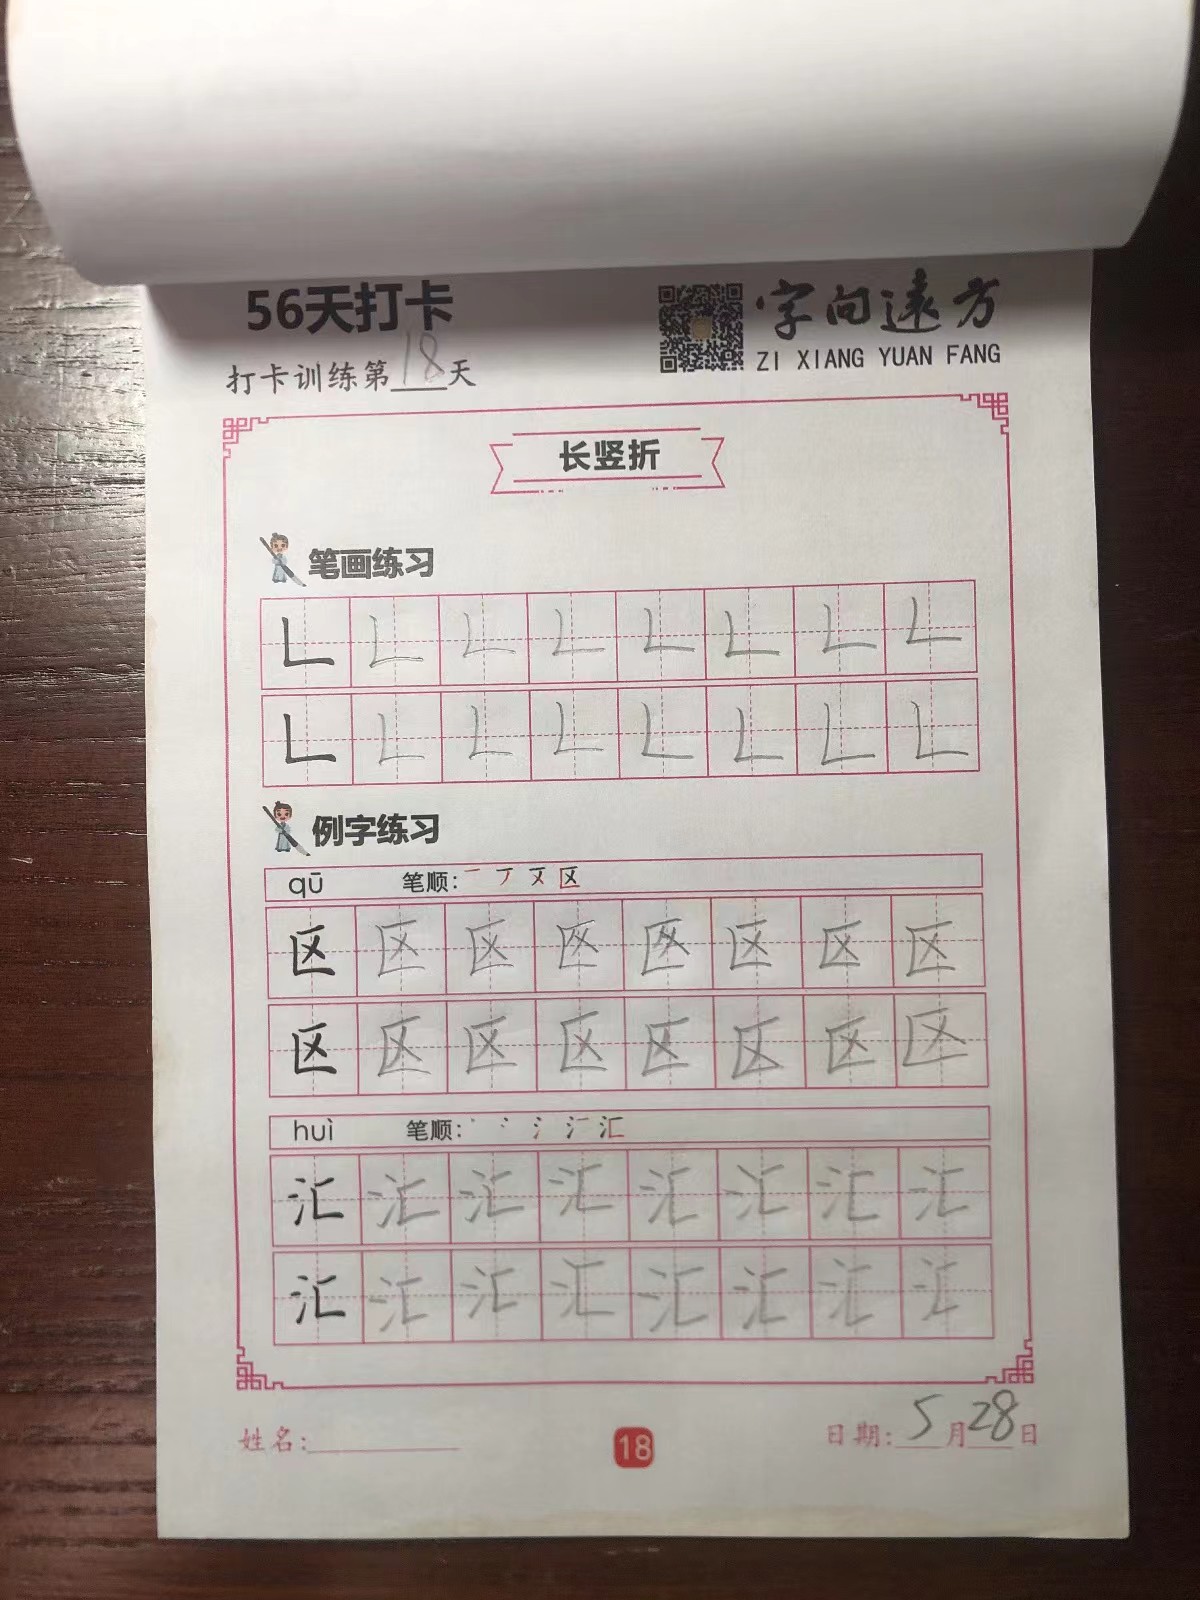 56天打卡
字向远方
ZI XIANG YUAN FANG
打卡训练第18天
长竖折
笔画练习
𠃊 𠃊 𠃊 𠃊 𠃊 𠃊 𠃊 𠃊
𠃊 𠃊 𠃊 𠃊 𠃊 𠃊 𠃊 𠃊
例字练习
qū 笔顺: 一 丆 区
区 区 区 区 区 区 区 区
区 区 区 区 区 区 区 区
huì 笔顺: 丶 冫 氵 汇
汇 汇 汇 汇 汇 汇 汇 汇
汇 汇 汇 汇 汇 汇 汇 汇
姓名:
18
日期: 5月28日